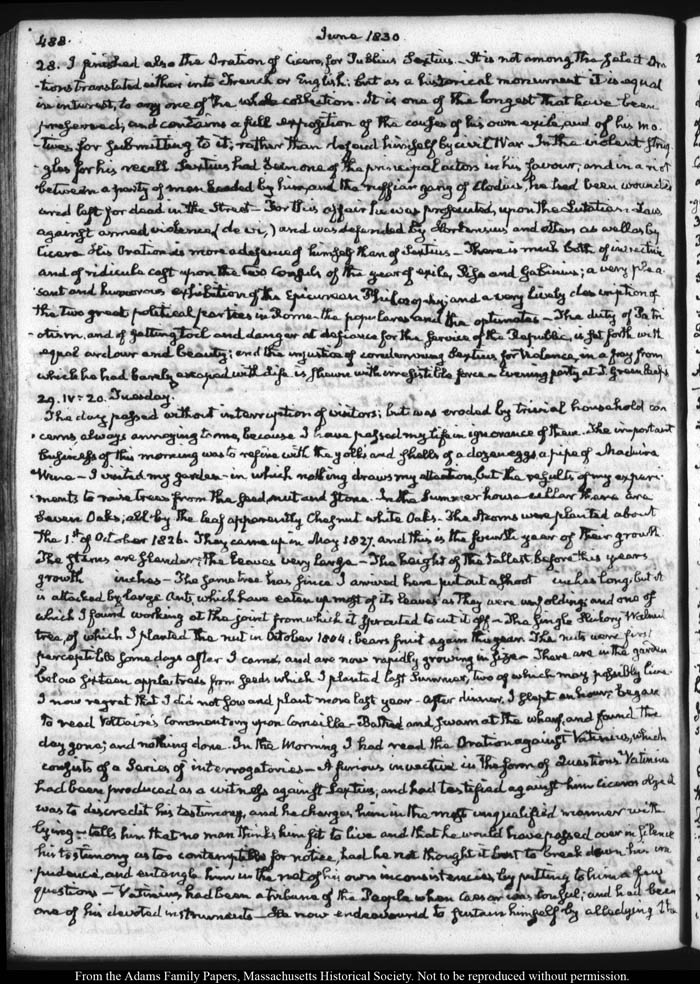 488.
June 1830
28. I finished also the Oration of Cicero, for Publius Sextius. It is not among the select Ora
-tions translated either into French or English: but as a historical monument it is equal
in interest, to any one of the whole collection. It is one of the longest that have been
preserved; and contains a full exposition of the causes of his own exile, and of his mo-
-tives for submitting to it; rather than defend himself by civil War. In the violent strug
-gles for his recall Sextius had been one of the principal actors in his favour; and in a riot
between a party of men headed by him, and the ruffian gang of Clodius, he had been wounded
and left for dead in the Street. For this affair he was prosecuted, upon the Lutatian Law
against armed violence (de vi,) and was defended by Hortensius and others as well as by
Cicero. His Oration is more a defence of himself than of Sextius. There is much both of invective
and of ridicule cast upon the two Consuls of the year of exile, Piso and Gabinius; a very plea
sant and humorous exhibition of the Epicurean Philosophy; and a very lively description of
the two great political parties in Rome the populares and the optimates. The duty of Patri
-otism, and of getting toil and danger at defiance for the service of the Republic, is set forth with
equal ardour and beauty; and the injustice of condemning Sextius for Violence, in a fray from
which he had barely escaped with life is shewn with irresistible force. Evening party at T. Greenleaf's
29. IV: 20. Tuesday.
The day passed without interruption of visitors; but was eroded by trivial household con
-cerns, always annoying to me, because I have passed my life in ignorance of them. The important
business of this morning was to refine with the yolks and shells of a dozen eggs a pipe of Madeira
Wine. I visited my garden in which nothing draws my attention, but the results of my experi-
-ments to raise trees from the seed, nut and stone. In the Summer house cellar there are
seven Oaks; all by the leaf apparently Chesnut white Oaks. The Acorns were planted about
the 1st of October 1826. They came up in May 1827, and this is the fourth year of their growth.
The stems are slender; the leaves very large. The height of the tallest before this years
growth inches. The same tree has since I arrived here put out a shoot inches long, but it
is attacked by large Ants, which have eaten up most of its leaves as they were unfolding; and one of
which I found working at the joint from which it sprouted to cut it off. The single Hickory Walnut
tree, of which I planted the nut in October 1804, bears fruit again this year. The nuts were first
perceptible some days after I came, and are now rapidly growing in size. There are in the garden
below sixteen apple trees from seeds which I planted last Summer, two of which may possibly live.
I now regret that I did not sow and plant more last year. After dinner, I slept an hour; began
to read Voltaire's Commentary upon Corneille. Bathed and swam at the wharf, and found the
day gone; and nothing done. In the Morning I had read the Oration against Vatinius, which
consists of a Series of interrogatories. A furious invective in the form of Questions. Vatinius
had been produced as a witness against Sextius, and had testified against him. Ciceros object
was to discredit his testimony, and he charges him in the most unqualified manner with
lying. tells him that no man thinks him fit to live and that he would have passed over in silence
his testimony as too contemptible for notice, had he not thought it best to break down his im
pudence, and entangle him in the net of his own inconsistencies, by putting to him a few
questions. Vatinius had been a tribune of the People when Caesar was Consul; and had been
one of his devoted instruments. He now endeavoured to sustain himself by alledging th
From the Adams Family Papers, Massachusetts Historical Society. Not to be reproduced without permission.